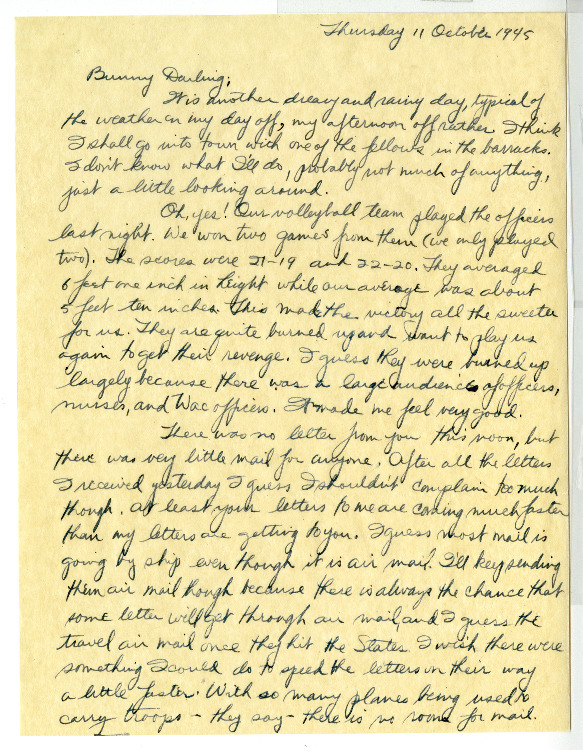 Thursday 11 October 1945
Bunny Darling;
It is another dreary and rainy day, typical of
the weather on my day off, my afternoon off rather. I think
I shall go into town with one of the fellows in the barracks.
I don't know what I'll do, probably not much of anything,
just a little looking around.
Oh, yes! Our volleyball team played the officers
last night. We won two games from them (we only played
two). The scores were 21-19 and 22-20. They averaged
6 feet one inch in height while our average was about
5 feet ten inches. This made the victory all the sweeter
for us. They are quite burned up and want to play us
again to get their revenge. I guess they were burned up
largely because there was a large audience of officers,
nurses, and Wac officers. It made me feel very good.
There was no letter from you this noon, but
there was very little mail for anyone. After all the letters
I received yesterday I guess I shouldn't complain too much
though. At least your letters to me are coming much faster
than my letters are getting to you. I guess most mail is
going by ship even though it is air mail. I'll keep sending
them air mail though because there is always the chance that
some letter will get through air mail, and I guess the
travel air mail once they hit the States. I wish there were
something I could do to speed the letters on their way
a little faster. With so many planes being used to
carry troops - they say - there is no room for mail.